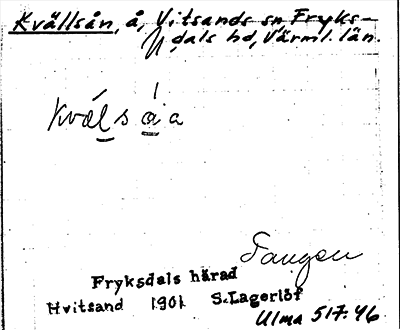 Kvällsån, å, Vitsands sn Fryks-
dals hd, Värml. län.
Kvælsåa
Tangen
Fryksdals härad
Hvitsand 1901 S. Lagerlöf
Ulma 517:46